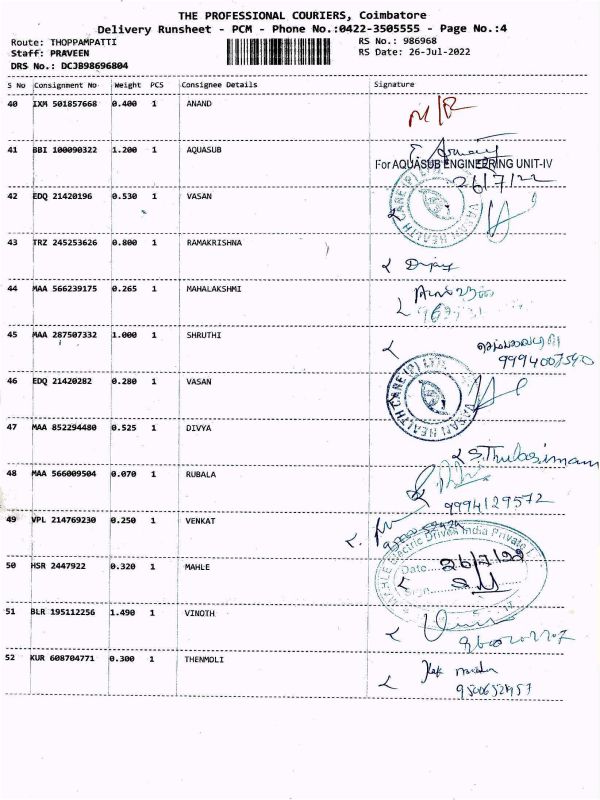 THE PROFESSIONAL COURIERS, Coimbatore
Delivery Runsheet - PCM - Phone No.:0422-3505555 - Page No.:4
Route: THOPPAMPATTI RS No.: 986968
Staff: PRAVEEN RS Date: 26-Jul-2022
DRS No.: DCJB98696804
S No Consignment No Weight PCS Consignee Details Signature
40 IXM 501857668 0.400 1 ANAND
41 BBI 100090322 1.200 1 AQUASUB
For AQUASUB ENGINEERING UNIT-IV
26/7/22
42 EDQ 21420196 0.530 1 VASAN
VASAN HEALTH CARE (P) LTD
43 TRZ 245253626 0.800 1 RAMAKRISHNA
44 MAA 566239175 0.265 1 MAHALAKSHMI
45 MAA 287507332 1.000 1 SHRUTHI
9994007540
46 EDQ 21420282 0.280 1 VASAN
VASAN HEALTH CARE (P) LTD
47 MAA 852294480 0.525 1 DIVYA
S.Thulasimani
48 MAA 566009504 0.070 1 RUBALA
9994129572
49 VPL 214769230 0.250 1 VENKAT
50 HSR 2447922 0.320 1 MAHLE
MAHLE Electric Drives India Private
Date 26/7/22
51 BLR 195112256 1.490 1 VINOTH
52 KUR 608704771 0.300 1 THENMOLI
9500652957